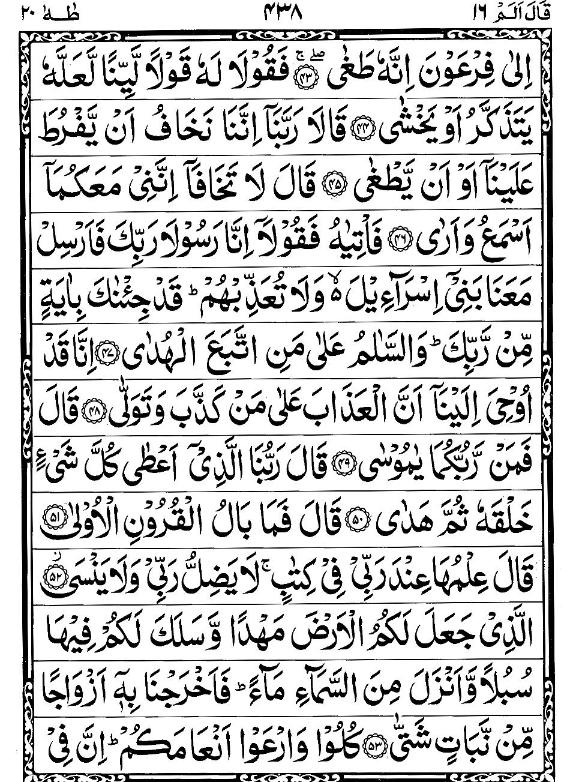 قَالَ اَلَمْ ١٦ ٤٣٨ طٰهٰ ٢٠
اِلٰى فِرْعَوْنَ اِنَّهٗ طَغٰى ۚۖ﴿۴۳﴾ فَقُوْلَا لَهٗ قَوْلًا لَّيِّنًا لَّعَلَّهٗ
يَتَذَكَّرُ اَوْ يَخْشٰى ﴿۴۴﴾ قَالَا رَبَّنَاۤ اِنَّنَا نَخَافُ اَنْ يَّفْرُطَ
عَلَيْنَاۤ اَوْ اَنْ يَّطْغٰى ﴿۴۵﴾ قَالَ لَا تَخَافَاۤ اِنَّنِيْ مَعَكُمَاۤ
اَسْمَعُ وَاَرٰى ﴿۴۶﴾ فَاْتِيٰهُ فَقُوْلَاۤ اِنَّا رَسُوْلَا رَبِّكَ فَاَرْسِلْ
مَعَنَا بَنِيْۤ اِسْرَآءِيْلَ ۙ۬ وَلَا تُعَذِّبْهُمْ ؕ قَدْ جِئْنٰكَ بِاٰيَةٍ
مِّنْ رَّبِّكَ ؕ وَالسَّلٰمُ عَلٰى مَنِ اتَّبَعَ الْهُدٰى ﴿۴۷﴾ اِنَّا قَدْ
اُوْحِيَ اِلَيْنَاۤ اَنَّ الْعَذَابَ عَلٰى مَنْ كَذَّبَ وَتَوَلّٰى ﴿۴۸﴾ قَالَ
فَمَنْ رَّبُّكُمَا يٰمُوْسٰى ﴿۴۹﴾ قَالَ رَبُّنَا الَّذِيْۤ اَعْطٰى كُلَّ شَيْءٍ
خَلْقَهٗ ثُمَّ هَدٰى ﴿۵۰﴾ قَالَ فَمَا بَالُ الْقُرُوْنِ الْاُوْلٰى ﴿۵۱﴾
قَالَ عِلْمُهَا عِنْدَ رَبِّيْ فِيْ كِتٰبٍ ۚ لَا يَضِلُّ رَبِّيْ وَلَا يَنْسَى ؗ﴿۵۲﴾
الَّذِيْ جَعَلَ لَكُمُ الْاَرْضَ مَهْدًا وَّسَلَكَ لَكُمْ فِيْهَا
سُبُلًا وَّاَنْزَلَ مِنَ السَّمَآءِ مَآءً ؕ فَاَخْرَجْنَا بِهٖۤ اَزْوَاجًا
مِّنْ نَّبَاتٍ شَتّٰى ﴿۵۳﴾ كُلُوْا وَارْعَوْا اَنْعَامَكُمْ ؕ اِنَّ فِيْ